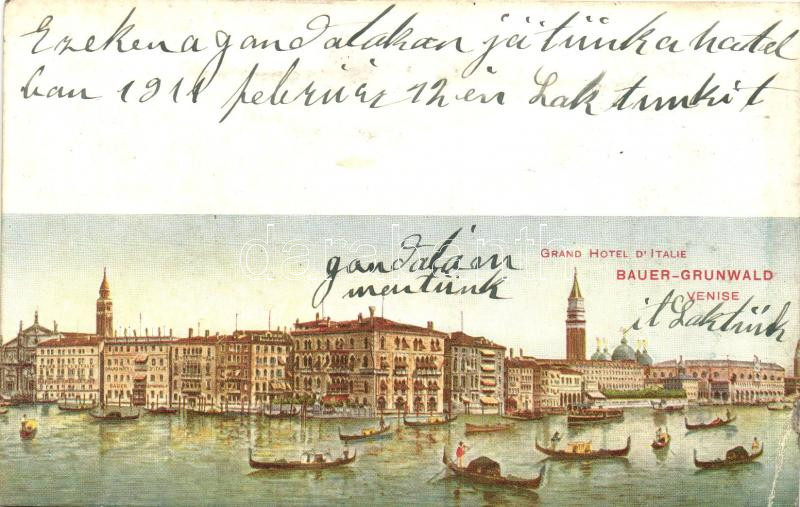 Ezeken a gandalakan jätünk a hatel
ban 1911 februúr 12 én Lak tunk it
gandalán
mentünk
GRAND HOTEL D'ITALIE
BAUER-GRUNWALD
VENISE
it Laktünk